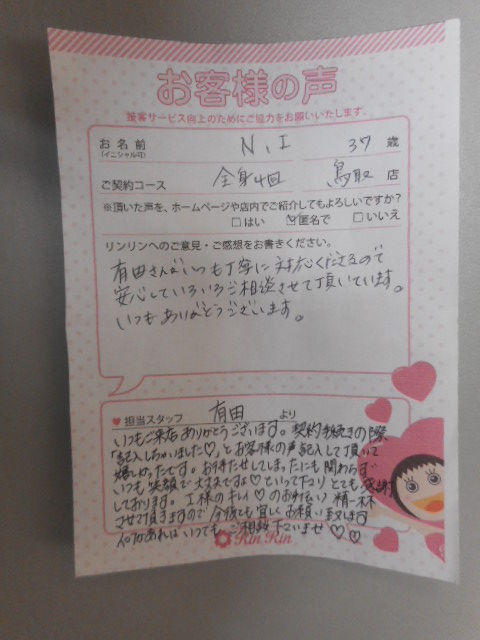 お客様の声
接客サービス向上のためにご協力をお願いいたします。
お名前 N.I 37 歳
(イニシャル可)
ご契約コース 全身4回 鳥取 店
※頂いた声を、ホームページや店内でご紹介してもよろしいですか?
□はい ☑匿名で □いいえ
リンリンへのご意見・ご感想をお書きください。
有田さんがいつも丁寧に対応くださるので
安心していろいろご相談させて頂いています。
いつもありがとうございます。
♥担当スタッフ 有田 より
いつもご来店ありがとうございます。契約手続きの際、
「記入しおわりました♡」とお客様の声記入して頂いて
嬉しかったです。お待たせしてしまったにも関わらず
いつも笑顔で大丈夫ですよ♡といって下さりとても感謝
しております。I様のキレイ♡のお手伝い精一杯
させて頂きますので今後とも宜しくお願い致します
何かあればいつでもご相談下さいませ♡♡
RinRin